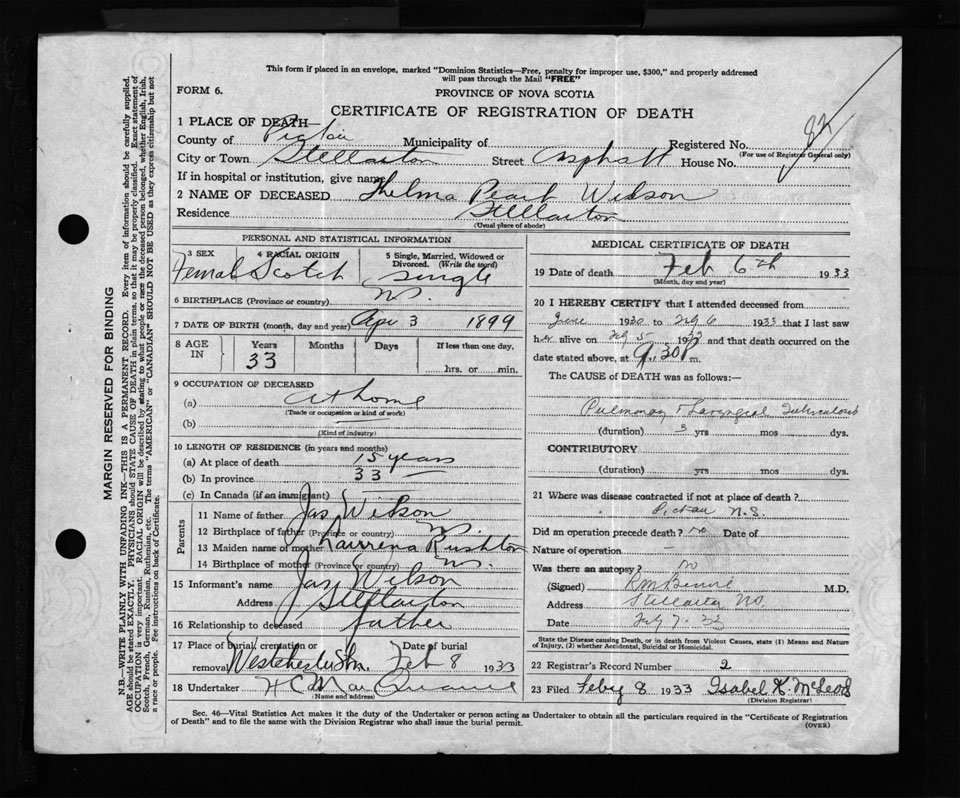 This form if placed in an envelope, marked "Dominion Statistics—Free, penalty for improper use, $300," and properly addressed
will pass through the Mail "FREE"
FORM 6.
PROVINCE OF NOVA SCOTIA
CERTIFICATE OF REGISTRATION OF DEATH
1 PLACE OF DEATH—
County of Pictou Municipality of Registered No.
(For use of Registrar General only)
City or Town Stellarton Street Asphalt House No.
If in hospital or institution, give name
2 NAME OF DECEASED Thelma Pearl Wilson
Residence Stellarton
(Usual place of abode)
PERSONAL AND STATISTICAL INFORMATION
3 SEX 4 RACIAL ORIGIN 5 Single, Married, Widowed or
Divorced. (Write the word)
Female Scotch single
6 BIRTHPLACE (Province or country) N.S.
7 DATE OF BIRTH (month, day and year) Apr 3 1899
8 AGE IN Years Months Days If less than one day,
33 hrs. or min.
9 OCCUPATION OF DECEASED
(a) At home
(Trade or occupation or kind of work)
(b)
(Kind of industry)
10 LENGTH OF RESIDENCE (in years and months)
(a) At place of death 15 years
(b) In province 33 —
(c) In Canada (if an immigrant)
Parents
11 Name of father Jas Wilson
12 Birthplace of father (Province or country) N.S.
13 Maiden name of mother Laurena Rushton
14 Birthplace of mother (Province or country) N.S.
15 Informant's name Jas Wilson
Address Stellarton
16 Relationship to deceased father
17 Place of burial, cremation or Date of burial
removal Westchester Stn. Feb 8 1933
18 Undertaker H C
(Name and address)
MEDICAL CERTIFICATE OF DEATH
19 Date of death Feb 6th 1933
(Month, day and year)
20 I HEREBY CERTIFY that I attended deceased from
June 1930 to Feb 6 1933 that I last saw
her alive on Feb 5 1933 and that death occurred on the
date stated above, at 9.30 P m.
The CAUSE of DEATH was as follows:—
Pulmonary & Laryngeal Tuberculosis
(duration) 3 yrs mos dys.
CONTRIBUTORY
(duration) yrs mos dys.
21 Where was disease contracted if not at place of death?
Pictou N.S.
Did an operation precede death? no Date of
Nature of operation —
Was there an autopsy? no
(Signed) M.D.
Address Stellarton N.S.
Date Feby 7. 33
State the Disease causing Death, or in death from Violent Causes, state (1) Means and Nature
of Injury, (2) whether Accidental, Suicidal or Homicidal.
22 Registrar's Record Number 2
23 Filed Feby 8 1933 Isabel K. McLeod
(Division Registrar)
Sec. 46—Vital Statistics Act makes it the duty of the Undertaker or person acting as Undertaker to obtain all the particulars required in the "Certificate of Registration
of Death" and to file the same with the Division Registrar who shall issue the burial permit.
(OVER)
MARGIN RESERVED FOR BINDING
N.B.—WRITE PLAINLY WITH UNFADING INK—THIS IS A PERMANENT RECORD. Every item of information should be carefully supplied.
AGE should be stated EXACTLY. PHYSICIANS should STATE CAUSE OF DEATH in plain terms, so that it may be properly classified. Exact statement of
OCCUPATION is very important. RACIAL ORIGIN will be described by stating to what people or race the deceased person belonged, whether English, Irish,
Scotch, French, German, Russian, Ruthenian, etc. The terms "AMERICAN" or "CANADIAN" SHOULD NOT BE USED as they express citizenship but not
a race or people. See instructions on back of Certificate.